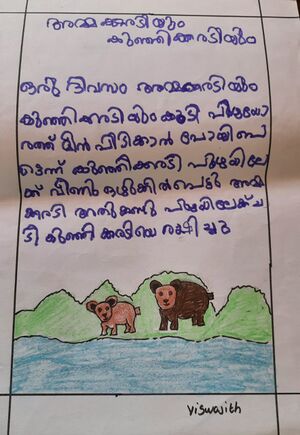 അമ്മക്കരടിയും
കുഞ്ഞിക്കരടിയും
ഒരു ദിവസം അമ്മക്കരടിയും
കുഞ്ഞിക്കരടിയും കൂടി പുഴയോ
രത്ത് മീൻ പിടിക്കാൻ പോയി പെ
ട്ടെന്ന് കുഞ്ഞിക്കരടി പുഴയിലേ
ക്ക് വീണു ഒഴുക്കിൽപെട്ടു അമ്മ
ക്കരടി അതുകണ്ടു പുഴയിലേക്ക് ചാ
ടി കുഞ്ഞിക്കരടിയെ രക്ഷിച്ചു
Viswajith